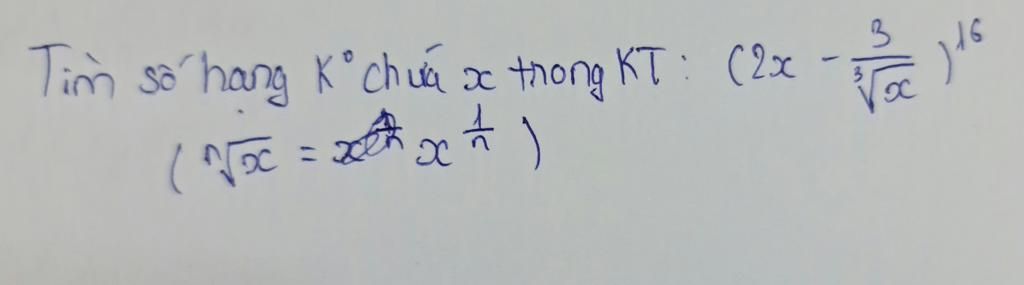 Tìm số hạng K° chứa x trong KT: (2x - 3/∛x)^16
(ⁿ√x = x^(1/n))